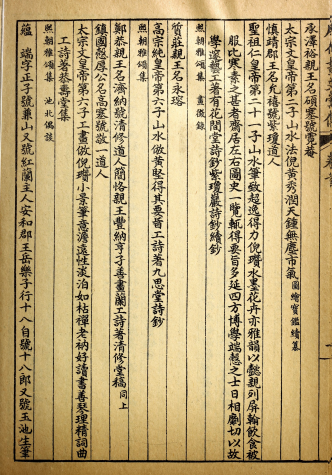 承澤裕親王名碩塞號霓菴
太宗文皇帝第二子山水法倪黃秀潤天鍾無塵市氣圖繪寶鑑續纂
慎靖郡王名允禧號紫瓊道人
聖祖仁皇帝第二十一子山水筆致超逸得力倪瓚水墨花卉亦雅韻以懿親列屏翰飲食被
服比寒素之甚者齋居左右圖史一覽輒得要旨多延四方博學端慤之士日相劘切以故
學深藝工著有花間堂詩鈔紫瓊巖詩鈔續鈔
熙朝雅頌集 畫徵錄
質莊親王名永瑢
高宗純皇帝第六子山水倣黃堅得其要晉工詩著九思堂詩鈔
熙朝雅頌集
鄭恭親王名濟納號清修道人簡恪親王豐納亨子善畫蘭工詩著清修堂稿同上
鎮國愨厚公名高塞號敬一道人
太宗文皇帝第六子工畫倣倪瓚小景筆意澹遠性淡泊如枯禪老衲好讀書善琴理精詞曲
工詩著恭壽堂集
熙朝雅頌集 池北偶談
蘊端字正子號兼山又號紅蘭主人安和郡王岳樂子行十八自號十八郎又號玉池生筆